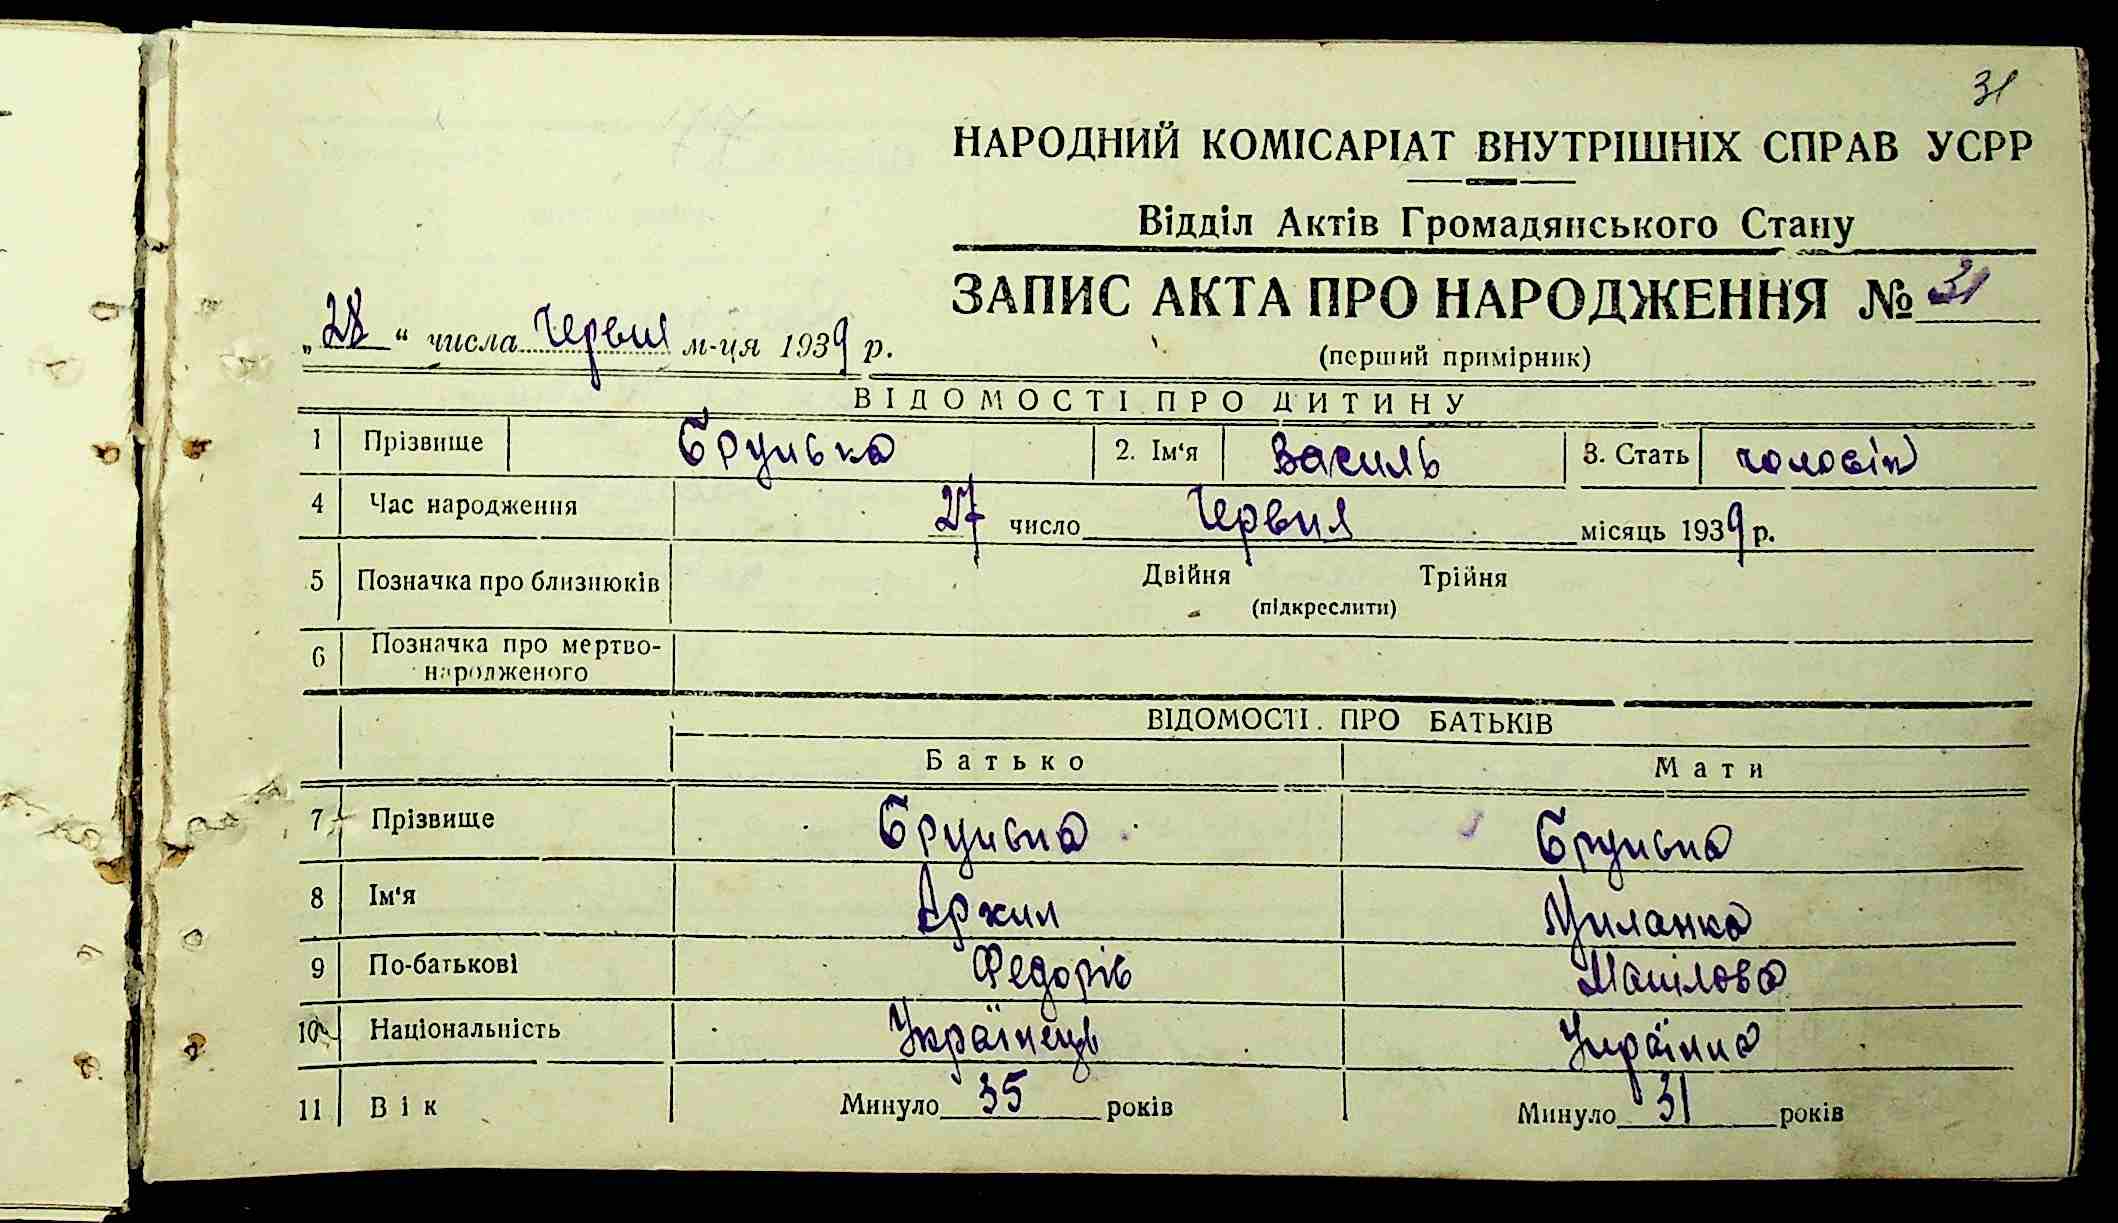 31
НАРОДНИЙ КОМІСАРІАТ ВНУТРІШНІХ СПРАВ УСРР
Відділ Актів Громадянського Стану
ЗАПИС АКТА ПРО НАРОДЖЕННЯ № 31
„28“ числа Червня м-ця 1939 р.
(перший примірник)
ВІДОМОСТІ ПРО ДИТИНУ
1 Прізвище Брунька 2. Ім'я Василь 3. Стать чоловіч
4 Час народження 27 число Червня місяць 1939 р.
5 Позначка про близнюків Двійня Трійня
(підкреслити)
6 Позначка про мертво-
народженого
ВІДОМОСТІ ПРО БАТЬКІВ
Батько Мати
7 Прізвище Брунька Брунька
8 Ім'я Архип Миланка
9 По-батькові Федорів
10 Національність Українець Українка
11 Вік Минуло 35 років Минуло 31 років